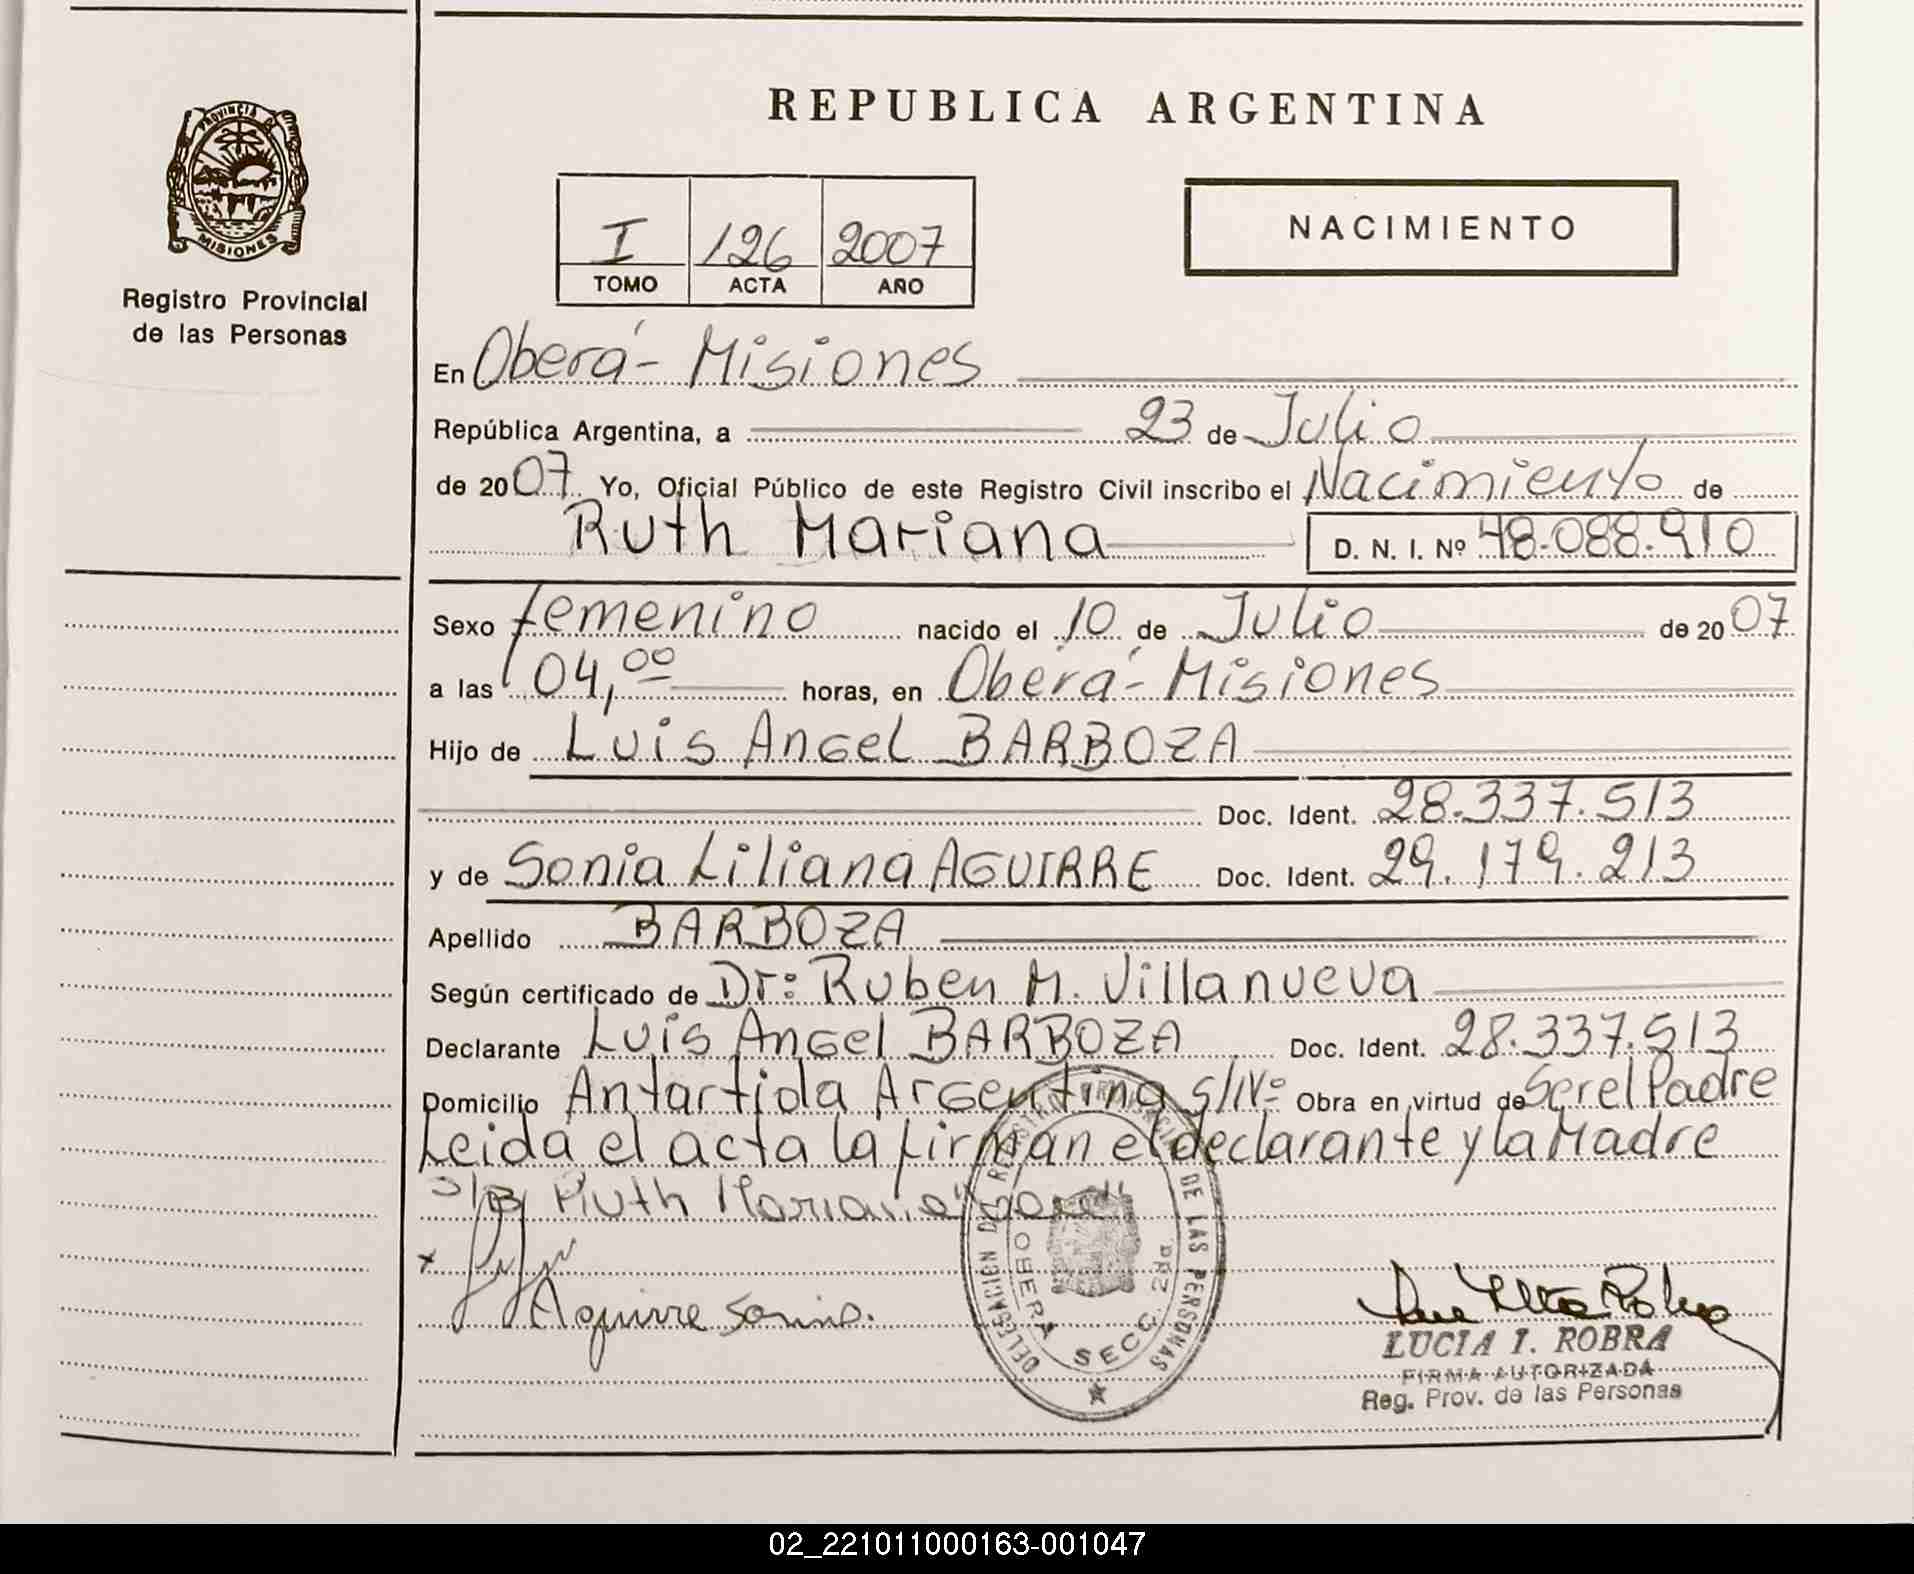 REPUBLICA ARGENTINA
PROVINCIA DE
MISIONES
Registro Provincial
de las Personas
I 126 2007
TOMO ACTA AÑO
NACIMIENTO
En Oberá - Misiones
República Argentina, a 23 de Julio
de 2007 Yo, Oficial Público de este Registro Civil inscribo el Nacimiento de
Ruth Mariana D. N. I. Nº 48.088.910
Sexo femenino nacido el 10 de Julio de 2007
a las 04,00 horas, en Oberá - Misiones
Hijo de Luis Angel BARBOZA
Doc. Ident. 28.337.513
y de Sonia Liliana AGUIRRE Doc. Ident. 29.179.213
Apellido BARBOZA
Según certificado de Dr: Ruben M. Villanueva
Declarante Luis Angel BARBOZA Doc. Ident. 28.337.513
Domicilio Antartida Argentina S/Nº Obra en virtud de Ser el Padre
Leida el acta la firman el declarante y la Madre
S/B Ruth Mariana
Aguirre Sonia.
DELEGACION DE REGISTRO PROVINCIAL DE LAS PERSONAS
OBERA SECC. 2da
LUCIA I. ROBRA
FIRMA AUTORIZADA
Reg. Prov. de las Personas
02_221011000163-001047